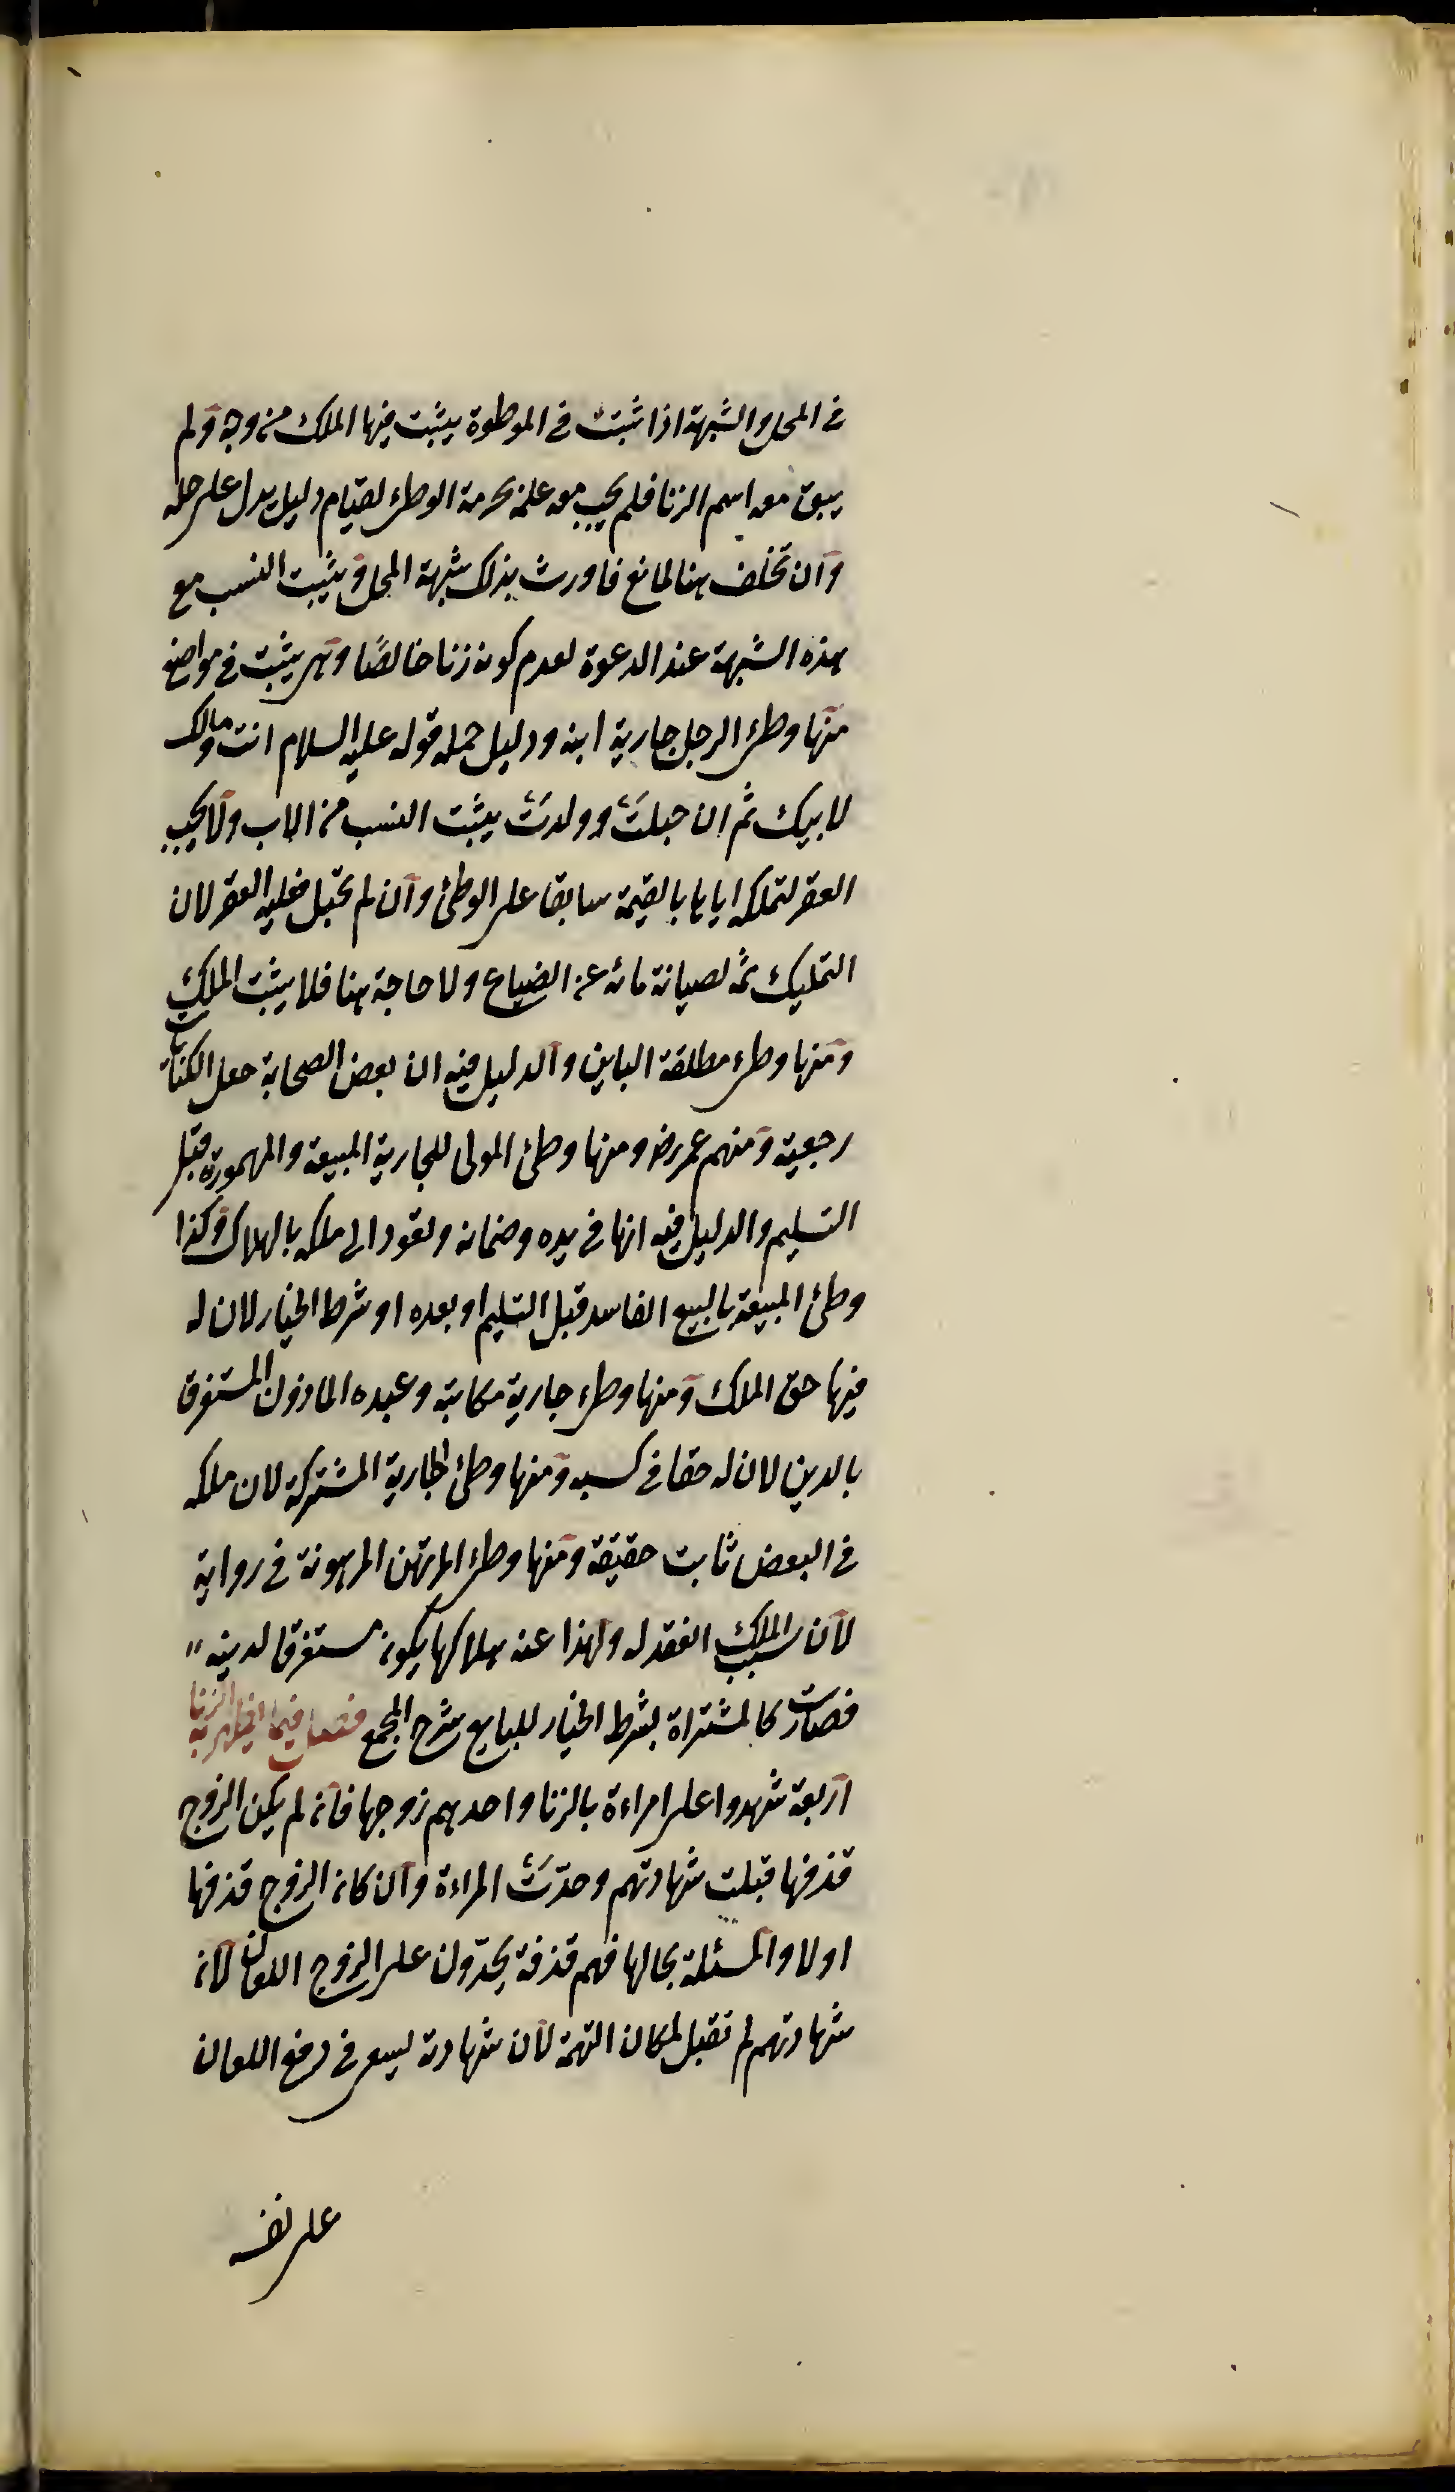 في المحل والشبهة اذا ثبتت في الموطوة يثبت فيها الملك من وجه ولم
يبق معه اسم الزنا فلم يجب مع علمه بحرمة الوطئ لقيام دليل يدل على حله
وان تخلف هنا لمانع فاورث بذلك شبهة المحل ويثبت النسب مع
هذه الشبهة عند الدعوة لعدم كونه زنا خالصًا وهي يثبت في مواضع
منها وطئ الرجل جارية ابنه ودليل حمله قوله عليه السلام انت ومالك
لابيك ثم ان حبلت وولدت يثبت النسب من الاب ولا يجب
العقر لتملكه اياها بالقيمة سابقا على الوطئ وان لم تحبل فعليه العقر لان
التمليك ثمه لصيانة مائه عن الضياع ولا حاجة هنا فلا يثبت الملك
ومنها وطئ مطلقة الباين والدليل فيه ان بعض الصحابة جعل الكنايات
رجعية ومنهم عمر رض ومنها وطئ المولى للجارية المبيعة والمهمورة قبل
التسليم والدليل فيه انها في يده وضمانه وتعود الى ملكه بالهلاك وكذا
وطئ المبيعة بالبيع الفاسد قبل التسليم او بعده او شرط الخيار لان له
فيها حق الملك ومنها وطئ جارية مكاتبه وعبده الماذون المستغرق
بالدين لان له حقا في كسبه ومنها وطئ الجارية المشتركة لان ملكه
في البعض ثابت حقيقة ومنها وطئ المرتهن المرهونة في رواية
لان سبب الملك انعقد له ولهذا عند هلاكها يكون مستغرقا لدينه
فصارت كالمشتراة بشرط الخيار للبايع شرح المجمع فصل فيما يظهر به الزنا
اربعة شهدوا على امراءة بالزنا واحدهم زوجها فان لم يكن الزوج
قذفها قبلت شهادتهم وحدّت المراءة وان كان الزوج قذفها
اولا والمسئلة بحالها فهم قذفة يحدّون على الزوج اللعان لان
شهادتهم لم تقبل لمكان التهمة لان شهادته ليسعى في دفع اللعان
على نفسه